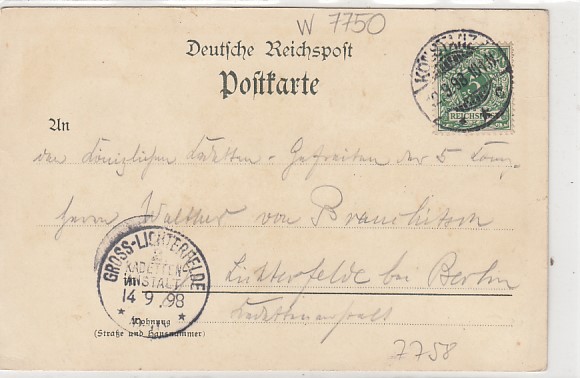 W 7750
Deutsche Reichspost
Postkarte
KONSTANZ
REICHSPOST
An
den Königlichen Kadetten - Gefreiten der 5 Komp.
Herrn Walther von Brauchitsch
GROSS-LICHTERFELDE
KADETTEN
ANSTALT
14 9 98
Lichterfelde bei Berlin
Kadettenanstalt
Wohnung
(Straße und Hausnummer)
7758